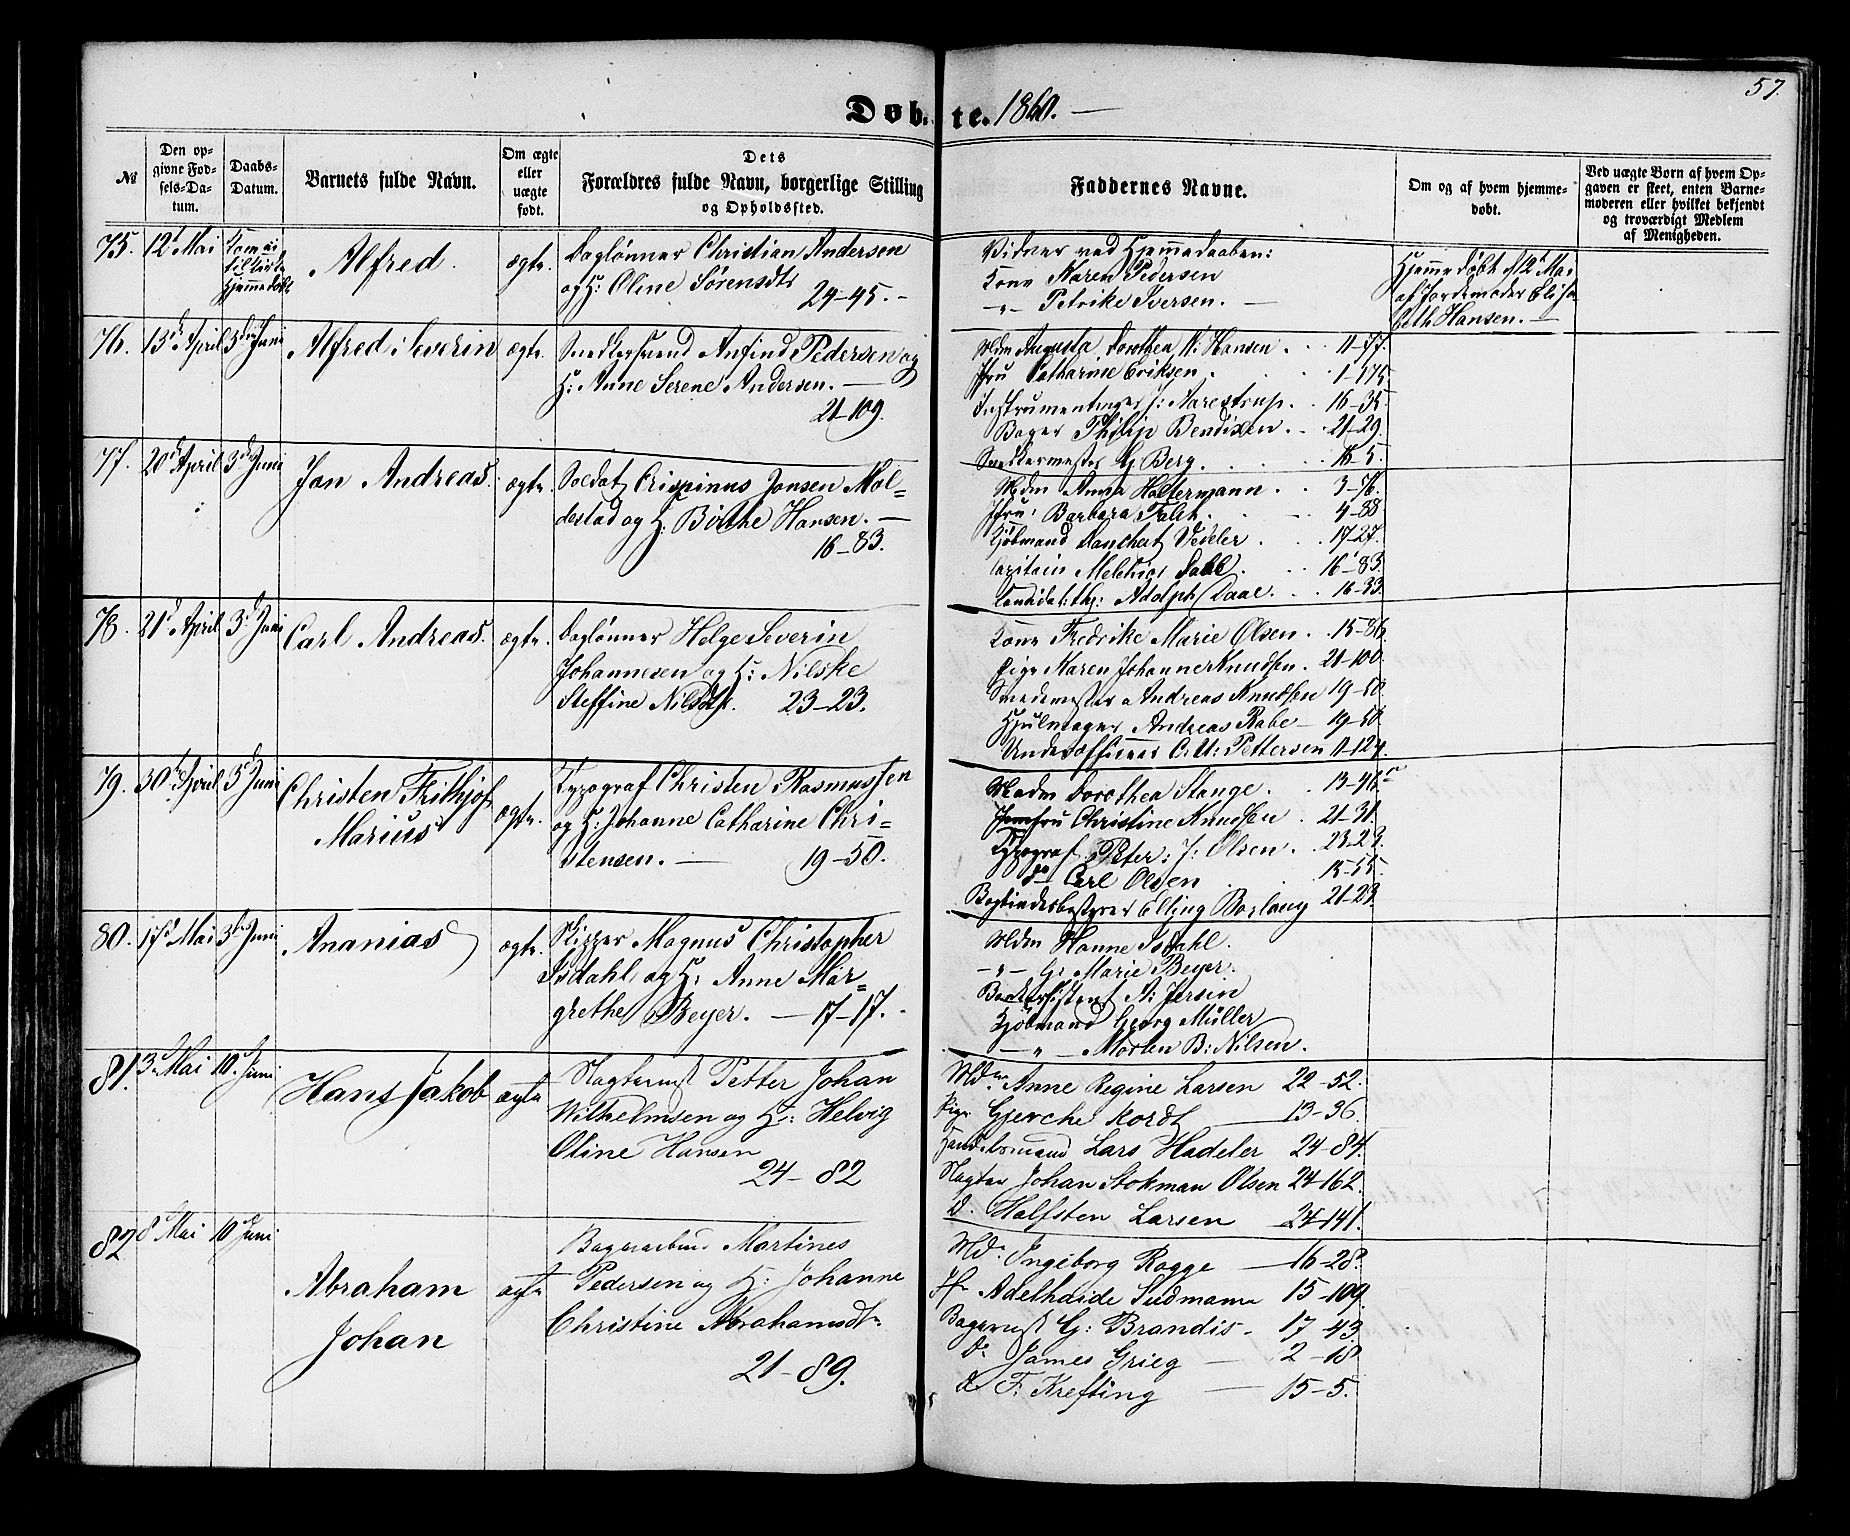 57.
Døbte. 1860. —
№
Den opgivne Fødsels-Datum.
Daabs-Datum.
Barnets fulde Navn.
Om ægte eller uægte født.
Dets Forældres fulde Navn, borgerlige Stilling og Opholdssted.
Faddernes Navne.
Om og af hvem hjemmedøbt.
Ved uægte Børn af hvem Opgaven er skeet, enten Barnemoderen eller hvilket bekjendt og troværdigt Medlem af Menigheden.
75. 12t Mai
Hjemmedøbt
Alfred.
ægte.
Daglønner Christian Andersen
og H: Oline Sørensdtr
24-45. -
Vidner ved Hjemmedaaben:
Kone Karen Pedersen
-"- Petrike Iversen. —
Hjemmedøbt d 12t Mai
af Jordemoder Elisa
beth Hansen. —
76. 13de April 3die Juni
Alfred Severin
ægte.
Snedkersvend Anfind Pedersen og
H: Anne Serene Andersen. —
21-109.
Mdm Augusta Dorothea N: Hansen . . 11-77.
Jfru Catharine Eriksen . . 1-175
Instrumentmager J: Aarestrup. . 16-35.
Bager Philip Bendixen. . 21-29.
Snedkermester G Berg. . . 16-5.
77. 20de April 3die Juni
Jan Andreas.
ægte.
Soldat Crispinus Jonsen Mol=
destad og H. Birthe Hansen. —
16-83.
Mdm Anna Holtermann . . 3-76.
Jfru: Barbara Falck . . 4-88
Kjøbmand Danchert Vedeler . . 17-27.
Capitain Melchior Dahl . . 16-83.
Candidat: Adolph Daae. . . 16-33.
78. 21d April 3d Juni
Carl Andreas.
ægte.
Daglønner Helge Severin
Johannesen og H: Nilske
Steffine Nilsdtr. 23-23.
Kone Fredrike Marie Olsen. . 15-86.
Pige Karen Johanne Knudsen. 21-100.
Smedemester Andreas Knudsen 19-50
Hjulmager Andreas Rabe — 19-50
Underofficeer C. U: Pettersen 11-124.
79. 30te April 3d Juni
Christen Frithjof
Marius
ægte.
Typograf Christen Rasmussen
og H: Johanne Catharine Chri=
stensen. — 19-50.
Madm Dorothea Stange. . 13-46
Jomfru Christine Knudsen . 21-31.
Typograf Peter: J: Olsen. . 23-23.
do Carl Olsen . . 15-55.
Elling Borlaug 21-23
80. 17d Mai 3die Juni
Ananias
ægte.
Skipper Magnus Christopher
Isdahl og H. Anne Mar=
grethe Beyer. — 17-17. .
Mdm Hanne Isdahl.
-"- G: Marie Beyer.
A: Jersin
Kjøbmand Georg Müller
— " — Morten B: Nilsen.
81. 3d Mai 10. Juni
Hans Jakob
ægte
Slagterm Petter Johan
Wilhelmsen og H: Helvig
Oline Hansen
24-82
Mdm Anne Regine Larsen 22-52.
Pige Gjerche Kordt — 13-36.
Handelsmand Lars Hadeler 24-84.
Slagter Johan Stokman Olsen 24-162.
d. Halfsten Larsen — 24-141.
82 8d Mai 10d Juni
Abraham
Johan
ægte
Bagerarbeid. Martines
Pedersen og H: Johanne
Christine Abrahamsdtr
21-89.
Md. Ingeborg Rogge — 16-28.
Jfr Adelhaide Sudmann 15-109.
Bagermst G: Brandis. 17-43.
Do James Grieg — 2-18
d. F: Krefting — 15-5.